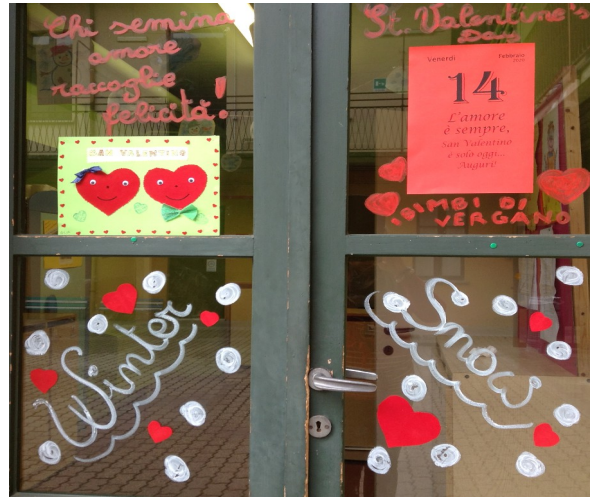 Chi semina
amore
raccoglie
felicità!
SAN VALENTINO
St. Valentine's
Day
Venerdì
Febbraio
14
L'amore
è sempre,
San Valentino
è solo oggi...
Auguri!
i BIMBI DI
VERGANO
Winter
Snow